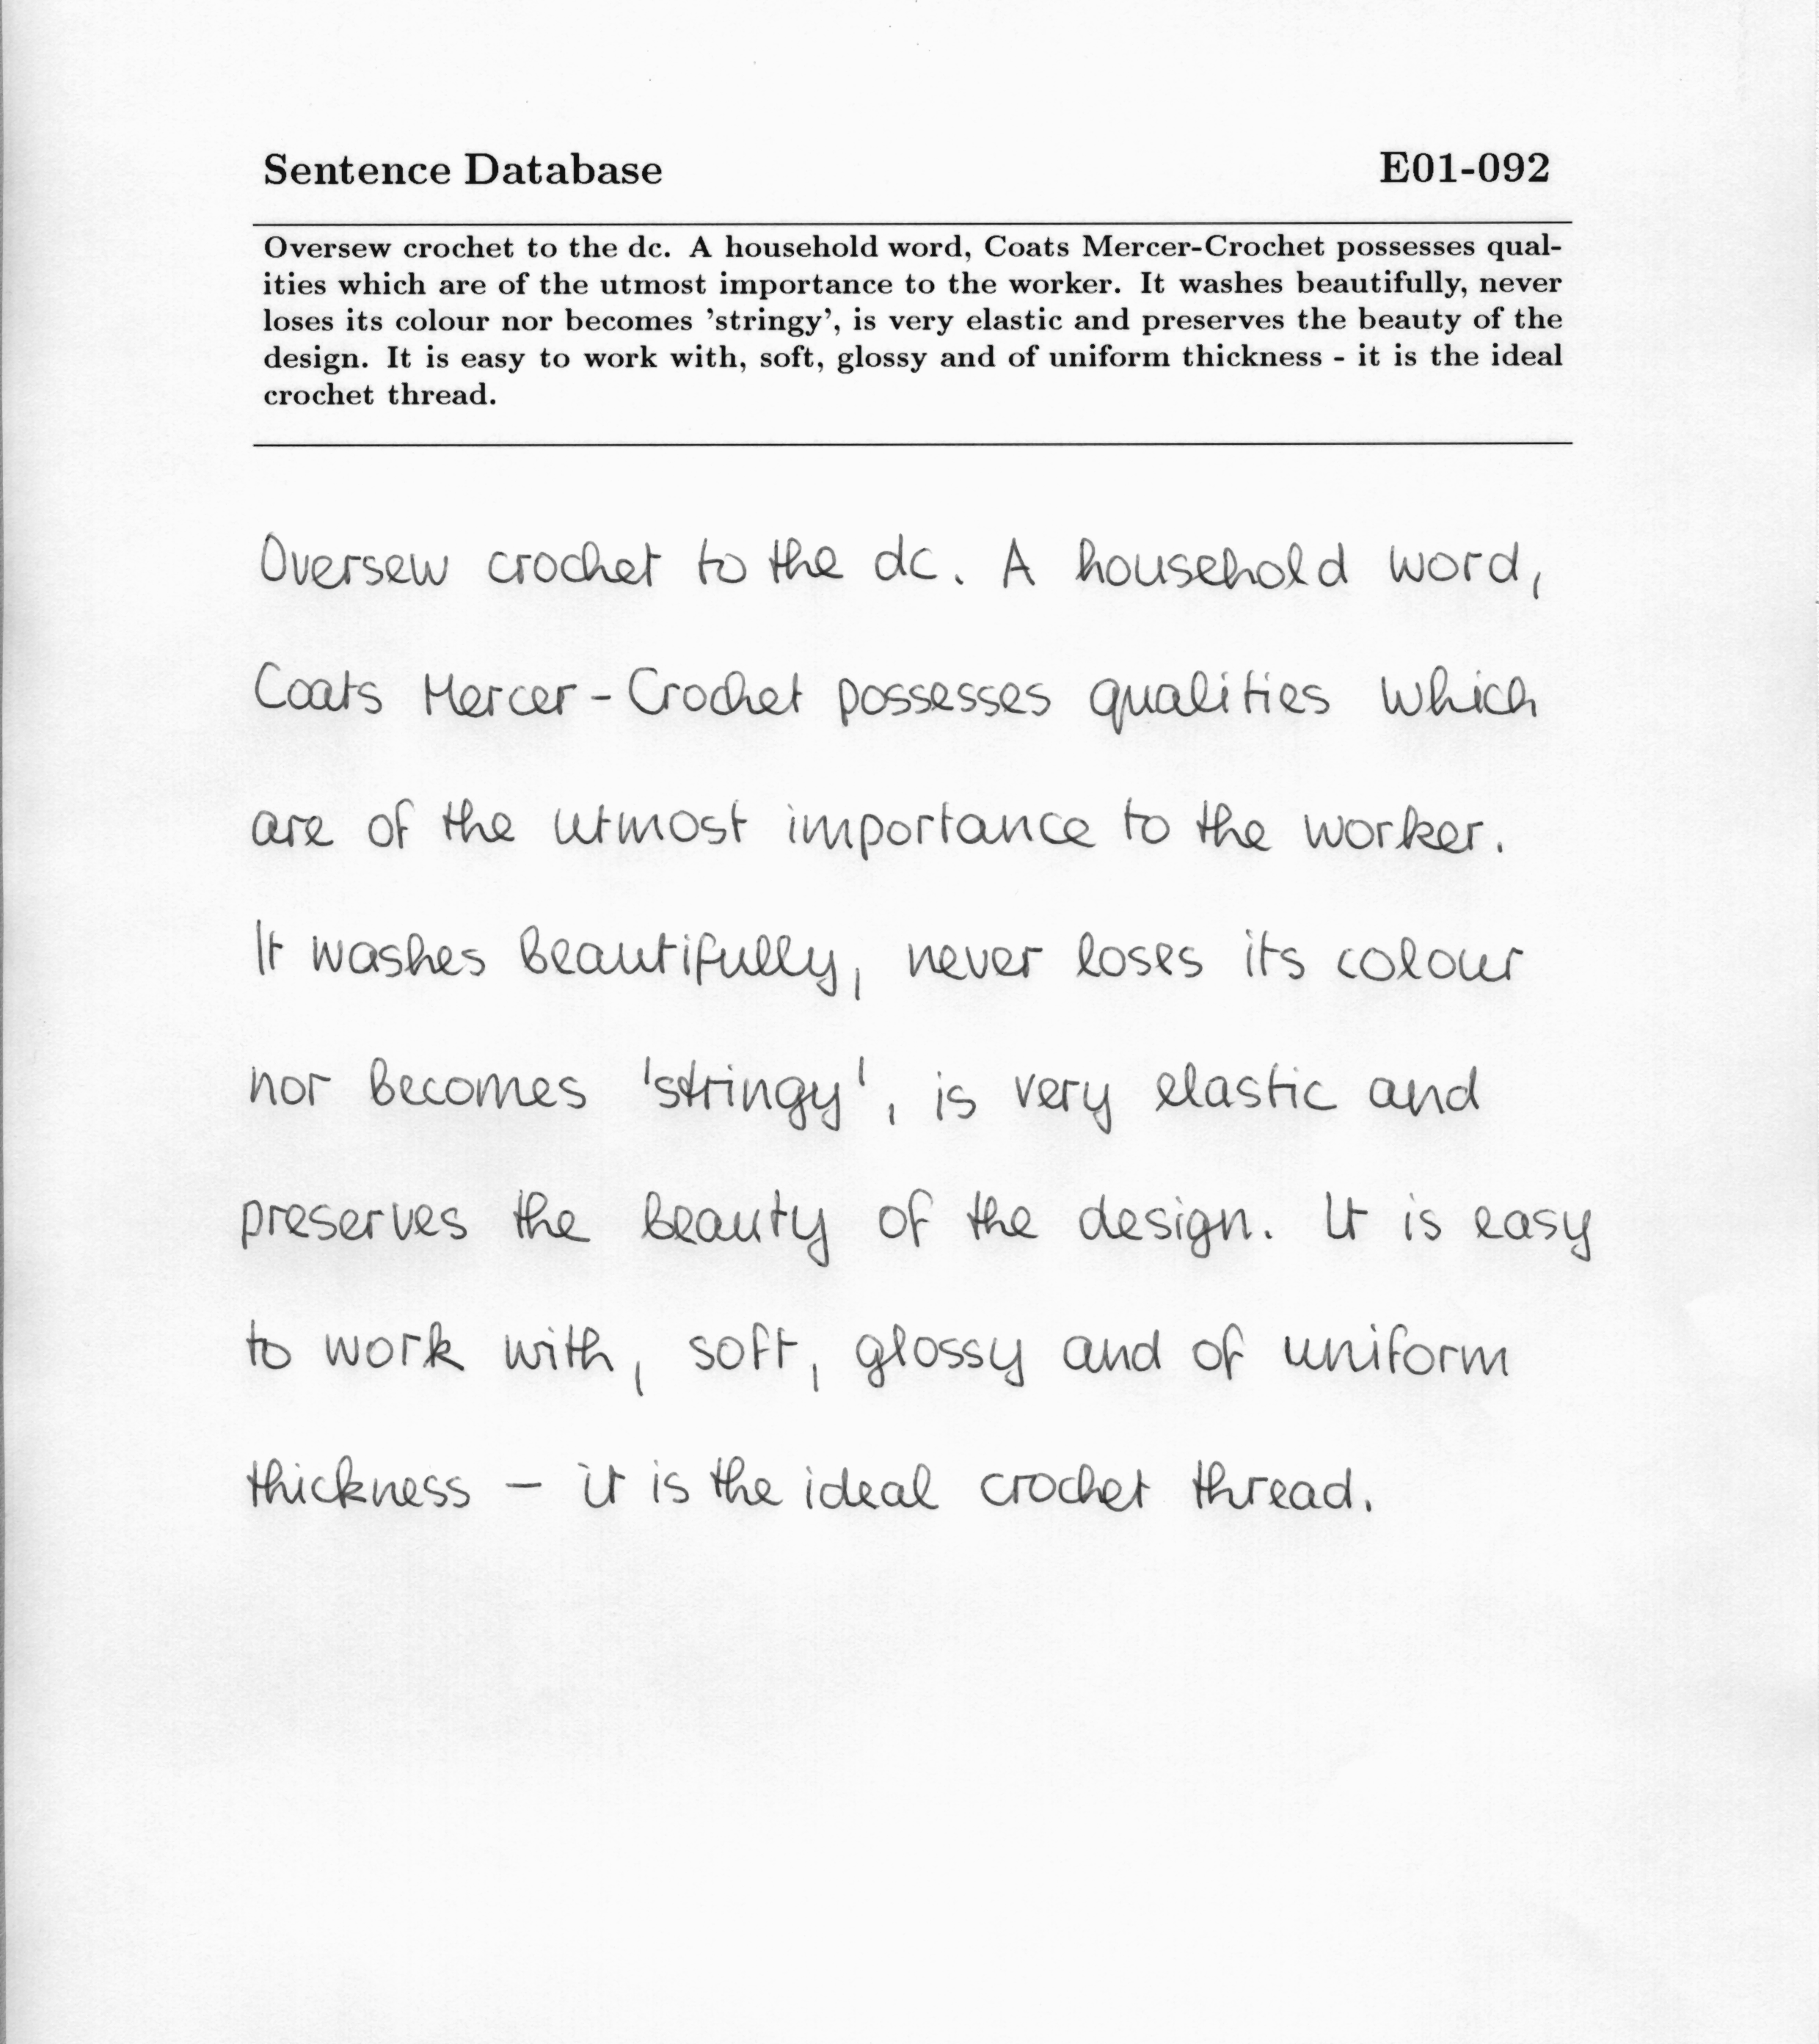 Sentence Database E01-092
Oversew crochet to the dc. A household word, Coats Mercer-Crochet possesses qual-
ities which are of the utmost importance to the worker. It washes beautifully, never
loses its colour nor becomes 'stringy', is very elastic and preserves the beauty of the
design. It is easy to work with, soft, glossy and of uniform thickness - it is the ideal
crochet thread.
Oversew crochet to the dc. A household word,
Coats Mercer-Crochet possesses qualities which
are of the utmost importance to the worker.
It washes beautifully, never loses its colour
nor becomes 'stringy', is very elastic and
preserves the beauty of the design. It is easy
to work with, soft, glossy and of uniform
thickness - it is the ideal crochet thread.